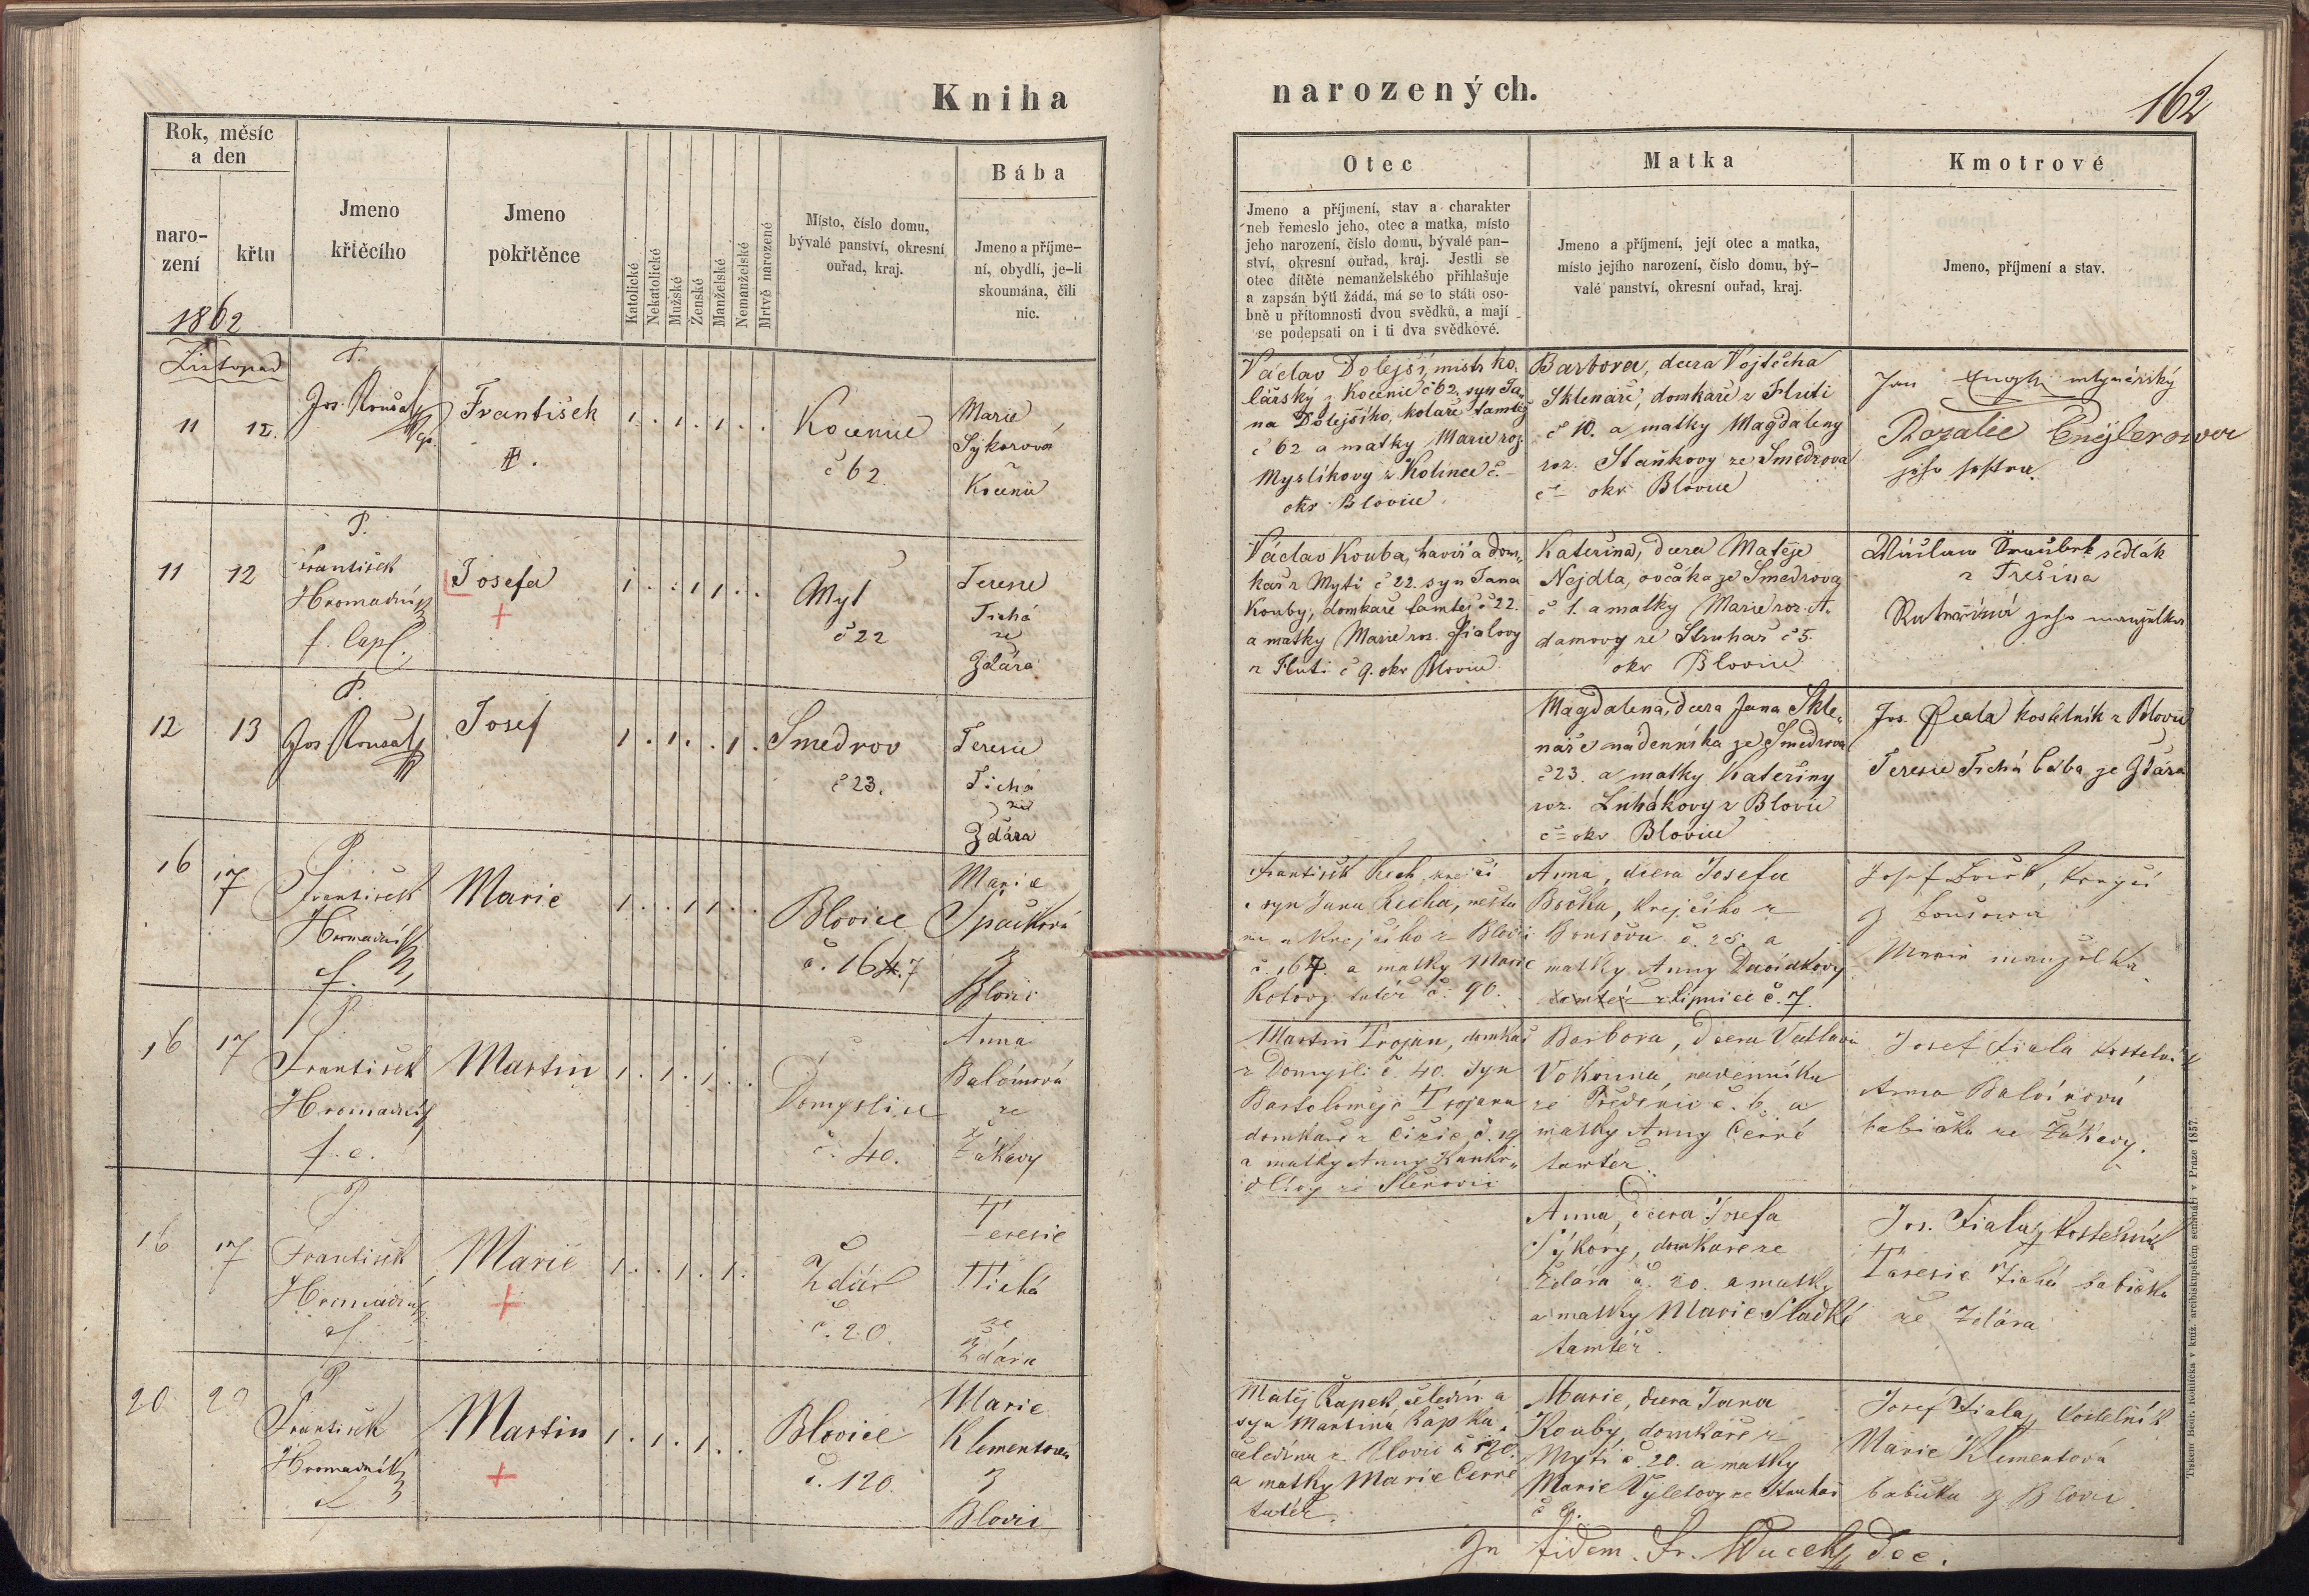 Kniha
narozených.
162
Rok, měsíc
a den
naro-
zení
křtu
Jmeno
křtěcího
Jmeno
pokřtěnce
Katolické
Nekatolické
Mužské
Ženské
Manželské
Nemanželské
Mrtvě narozené
Místo, číslo domu,
bývalé panství, okresní
ouřad, kraj.
Bába
Jmeno a příjme-
ní, obydlí, je-li
skoumána, čili
nic.
Otec
Jmeno a příjmení, stav a charakter
neb řemeslo jeho, otec a matka, místo
jeho narození, číslo domu, bývalé pan-
ství, okresní ouřad, kraj. Jestli se
otec dítěte nemanželského přihlašuje
a zapsán býti žádá, má se to státi oso-
bně u přítomnosti dvou svědků, a mají
se podepsati on i ti dva svědkové.
Matka
Jmeno a příjmení, její otec a matka,
místo jejího narození, číslo domu, bý-
valé panství, okresní ouřad, kraj.
Kmotrové
Jmeno, příjmení a stav.
1862
Listopad
11
12.
P.
Jos.
František
1 . . 1 . 1 . .
č 62
Marie
Sýkorová
Václav Dolejší, mistr ko-
lářský z č 62, syn Ja-
na Dolejšího, koláře tamtéž
č 62 a matky Marie roz.
Myslíkovy z Kolince č –
okr Blovice
Barbora, dcera Vojtěcha
Sklenáře, domkaře z
č 10. a matky Magdaleny
roz. Staňkovy ze Smedrova
č – okr Blovice
Jan mlynářský
Rozalie
jeho sestra.
11
12
P.
František
Hromadník
f. Capl.
Josefa
1 . . 1 1 . .
Myť
č 22
Teresie
Tichá
ze
Zdára
Václav Kouba, havíř a dom-
kař z Mytí č 22. syn Jana
Kouby, domkaře tamtéž č 22.
a matky Marie roz. Fialovy
z č 9. okr Blovice
Kateřina, dcera Matěje
Nejdla, ovčáka ze Smedrova
č 1. a matky Marie roz. A-
damovy ze Struhař č 5.
okr Blovice
sedlák
z Trešína
Kateřina jeho manželka
12
13
P.
Jos
Josef
1 . 1 . . 1 .
Smedrov
č 23.
Teresie
Tichá
ze
Zdára
Magdalena, dcera Jana Skle-
náře nádenníka ze Smedrova
č 23. a matky Kateřiny
roz. z Blovic
č – okr Blovice
Jos. Fiala kostelník z Blovic
Teresie Tichá bába ze Zdára
16
17
P.
František
Hromadník
f.
Marie
1 . . 1 1 . .
Blovice
č. 167
Marie
Špačková
z
Blovic
František Rech, krejčí
syn Jana Recha, měšťa
na a krejčího z Blovic
č. 167. a matky Marie
tutéž č. 90.
Anna, dcera Josefa
krejčího z
č. 25. a
matky Anny Davídkovy
tamtéž z Lipnice č. 7.
Josef krejčí
z
Marie manželka
16
17
P.
František
Hromadník
f. c.
Martin
1 . 1 . 1 . .
Domyslice
č. 40.
Anna
Balóinová
ze
Žákavy
Martin Trojan, domkař
z Domyslic č. 40. syn
Bartoloměje Trojana
domkaře z Čižic, č. 19
a matky Anny
ze Štěnovic
Barbora, dcera Václava
Vokouna, nádenníka
ze č. 6. a
matky Anny Černé
tamtéž.
Josef Fiala kostelník
Anna Balóinová
babička ze Žákavy.
16
17
P.
František
Hromadník
f.
Marie
1 . . 1 . 1 .
Zdár
č. 20.
Teresie
Tichá
ze
Zdára
Anna, dcera Josefa
Sýkory, domkaře ze
Zdára č. 20. a matky
a matky Marie Sladké
tamtéž.
Jos. Fiala, kostelník
Teresie Tichá babička
ze Zdára
20
20
P.
František
Hromadník
Martin
1 . 1 . 1 . .
Blovice
č. 120.
Marie
Klementová
z
Blovic
Matěj Čapek, čeledín a
syn Martina Čapka,
čeledína z Blovic č 120.
a matky Marie Černé
tutéž.
Marie, dcera Jana
Kouby, domkaře z
Mytí č. 20. a matky
Marie Výletovy ze Struhař
č 9.
Josef Fiala, kostelník
Marie Klementová
babička z Blovic.
In fidem. Fr. dec.
Tiskem Bedř. Rohlíčka v kníž. arcibiskupském semináři v Praze 1857.